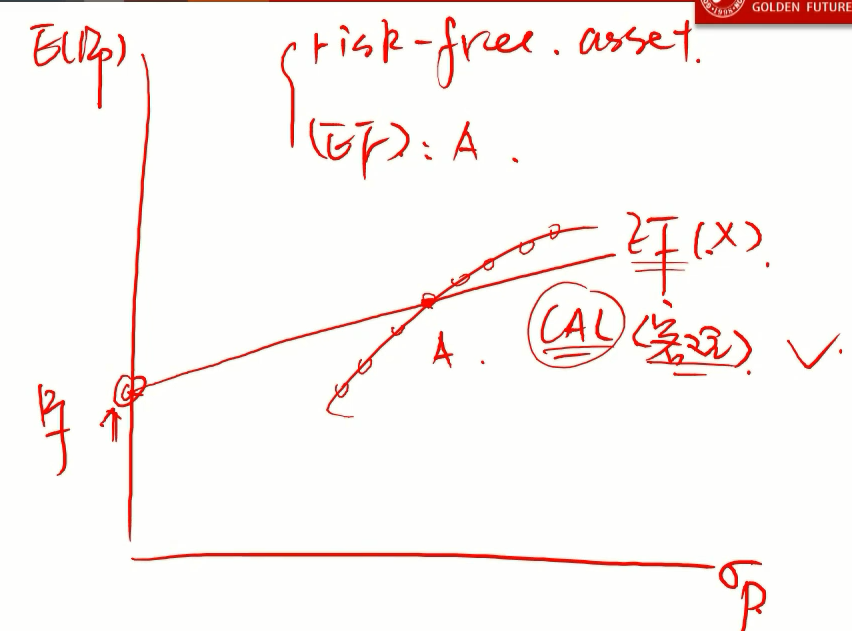 GOLDEN FUTURE
E(Rp)
risk-free. asset.
(EF): A.
EF (X).
CAL (客观). ✓.
A.
Rf
σp